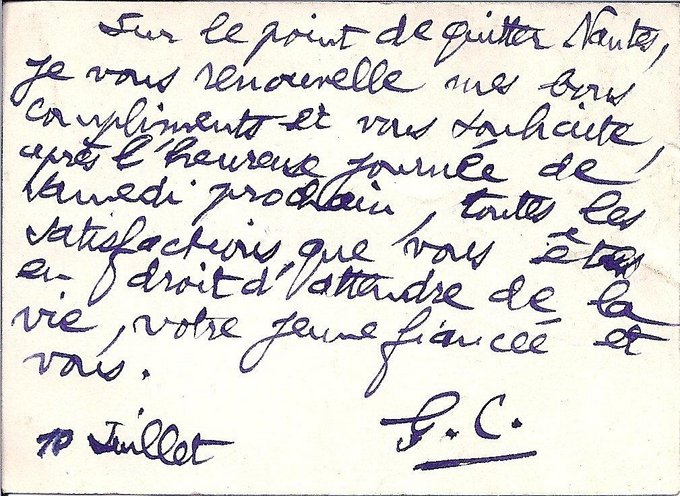 Sur le point de quitter Nantes,
je vous renouvelle mes bons
compliments et vous souhaite,
après l'heureuse journée de
samedi prochain, toutes les
satisfactions que vous êtes
en droit d'attendre de la
vie, votre jeune fiancée et
vous.
10 Juillet
G. C.